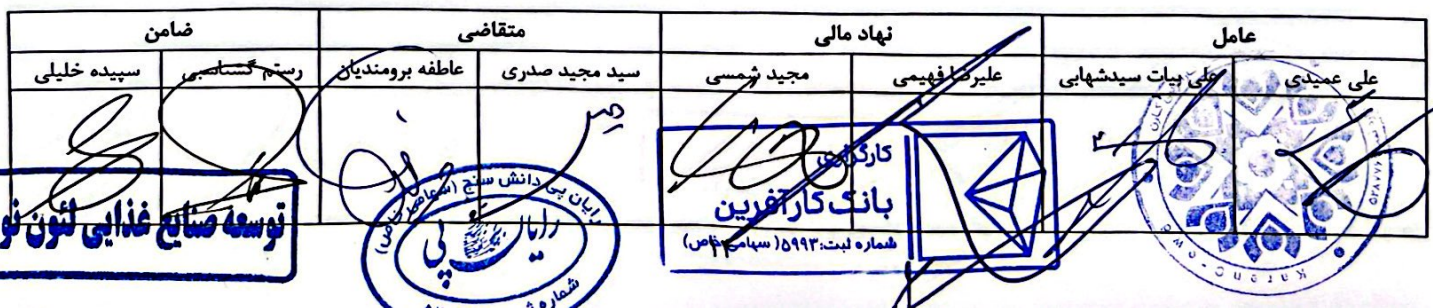 عامل نهاد مالی متقاضی ضامن
علی عمیدی علی بیات سیدشهابی علیرضا فهیمی مجید شمسی سید مجید صدری عاطفه برومندیان رستم گشتاسبی سپیده خلیلی
کارگزاری
بانک کارآفرین
شماره ثبت: ۵۹۹۳ (سهامی خاص)
رایان پی دانش سنج (سهامی خاص)
رایان پی
شماره
توسعه صنایع غذایی لئون نو